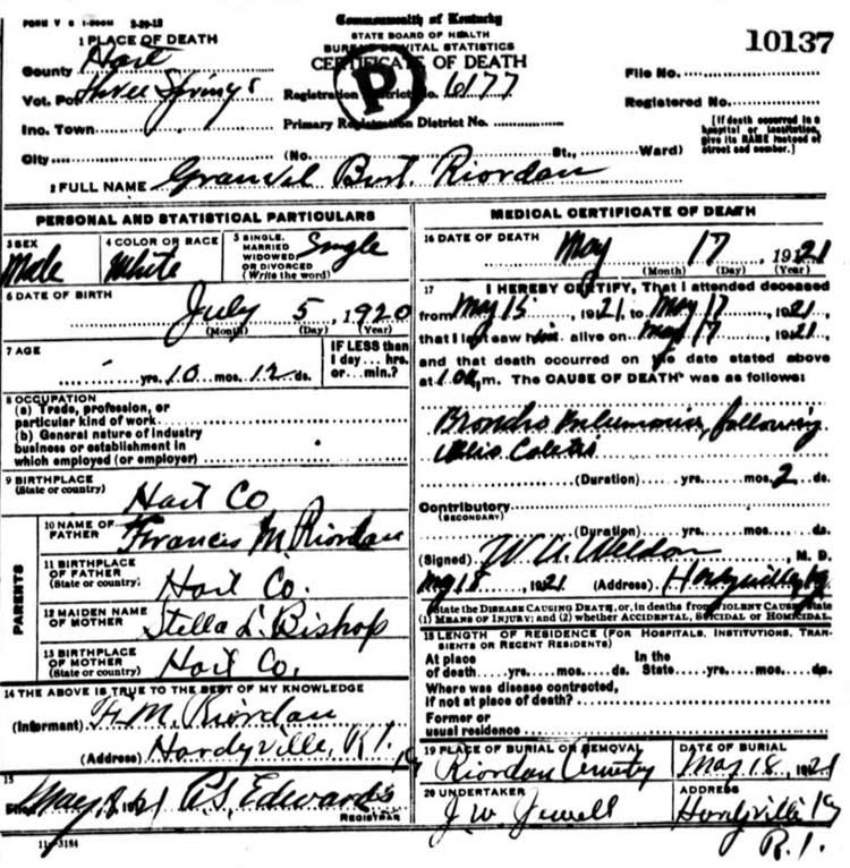 FORM V S 1-500M 3-29-18
Commonwealth of Kentucky
STATE BOARD OF HEALTH
BUREAU VITAL STATISTICS
CERTIFICATE OF DEATH
10137
1 PLACE OF DEATH
County Hart
Vot. Pct Three Springs
Inc. Town
City (No. St., Ward)
P
Registration District No. 6177
Primary Registration District No.
File No.
Registered No.
[If death occurred in a
hospital or institution,
give its NAME instead of
street and number.]
2 FULL NAME Granvil Burt. Riordan
PERSONAL AND STATISTICAL PARTICULARS
3 SEX
Male
4 COLOR OR RACE
White
5 SINGLE,
MARRIED
WIDOWED,
OR DIVORCED
(Write the word)
Single
6 DATE OF BIRTH
July 5, 1920
(Month) (Day) (Year)
7 AGE
yrs. 10 mos. 12 ds.
IF LESS than
1 day... hrs.
or... min.?
8 OCCUPATION
(a) Trade, profession, or
particular kind of work
(b) General nature of industry
business or establishment in
which employed (or employer)
9 BIRTHPLACE
(State or country)
Hart Co
PARENTS
10 NAME OF
FATHER
Frances M. Riordan
11 BIRTHPLACE
OF FATHER
(State or country)
Hart Co.
12 MAIDEN NAME
OF MOTHER
Stella L. Bishop
13 BIRTHPLACE
OF MOTHER
(State or country)
Hart Co.
14 THE ABOVE IS TRUE TO THE BEST OF MY KNOWLEDGE
(Informant) F. M. Riordan
(Address) Hardyville, R1. Ky
15
May 1921 P.S. Edwards
REGISTRAR
11-3184
MEDICAL CERTIFICATE OF DEATH
16 DATE OF DEATH
May 17, 1921
(Month) (Day) (Year)
17 I HEREBY CERTIFY, That I attended deceased
from May 15, 1921, to May 17, 1921,
that I last saw him alive on May 17, 1921,
and that death occurred on the date stated above
at m. The CAUSE OF DEATH* was as follows:
Broncho Pneumonia, following
Colitis
(Duration) yrs. mos. 2 ds.
Contributory
(SECONDARY)
(Duration) yrs. mos. ds.
(Signed) W. A. Weldon, M. D.
May 18, 1921 (Address) Hardyville Ky
State the DISEASE CAUSING DEATH, or, in deaths from VIOLENT CAUSES state
(1) MEANS OF INJURY; and (2) whether ACCIDENTAL, SUICIDAL or HOMICIDAL.
18 LENGTH OF RESIDENCE (FOR HOSPITALS, INSTITUTIONS, TRAN-
SIENTS OR RECENT RESIDENTS)
At place In the
of death yrs. mos. ds. State yrs. mos. ds.
Where was disease contracted,
if not at place of death?
Former or
usual residence
19 PLACE OF BURIAL OR REMOVAL
Riordan Cemetry
DATE OF BURIAL
May 18, 1921
20 UNDERTAKER
J. W. Jewell
ADDRESS
Hardyville Ky
R.1.